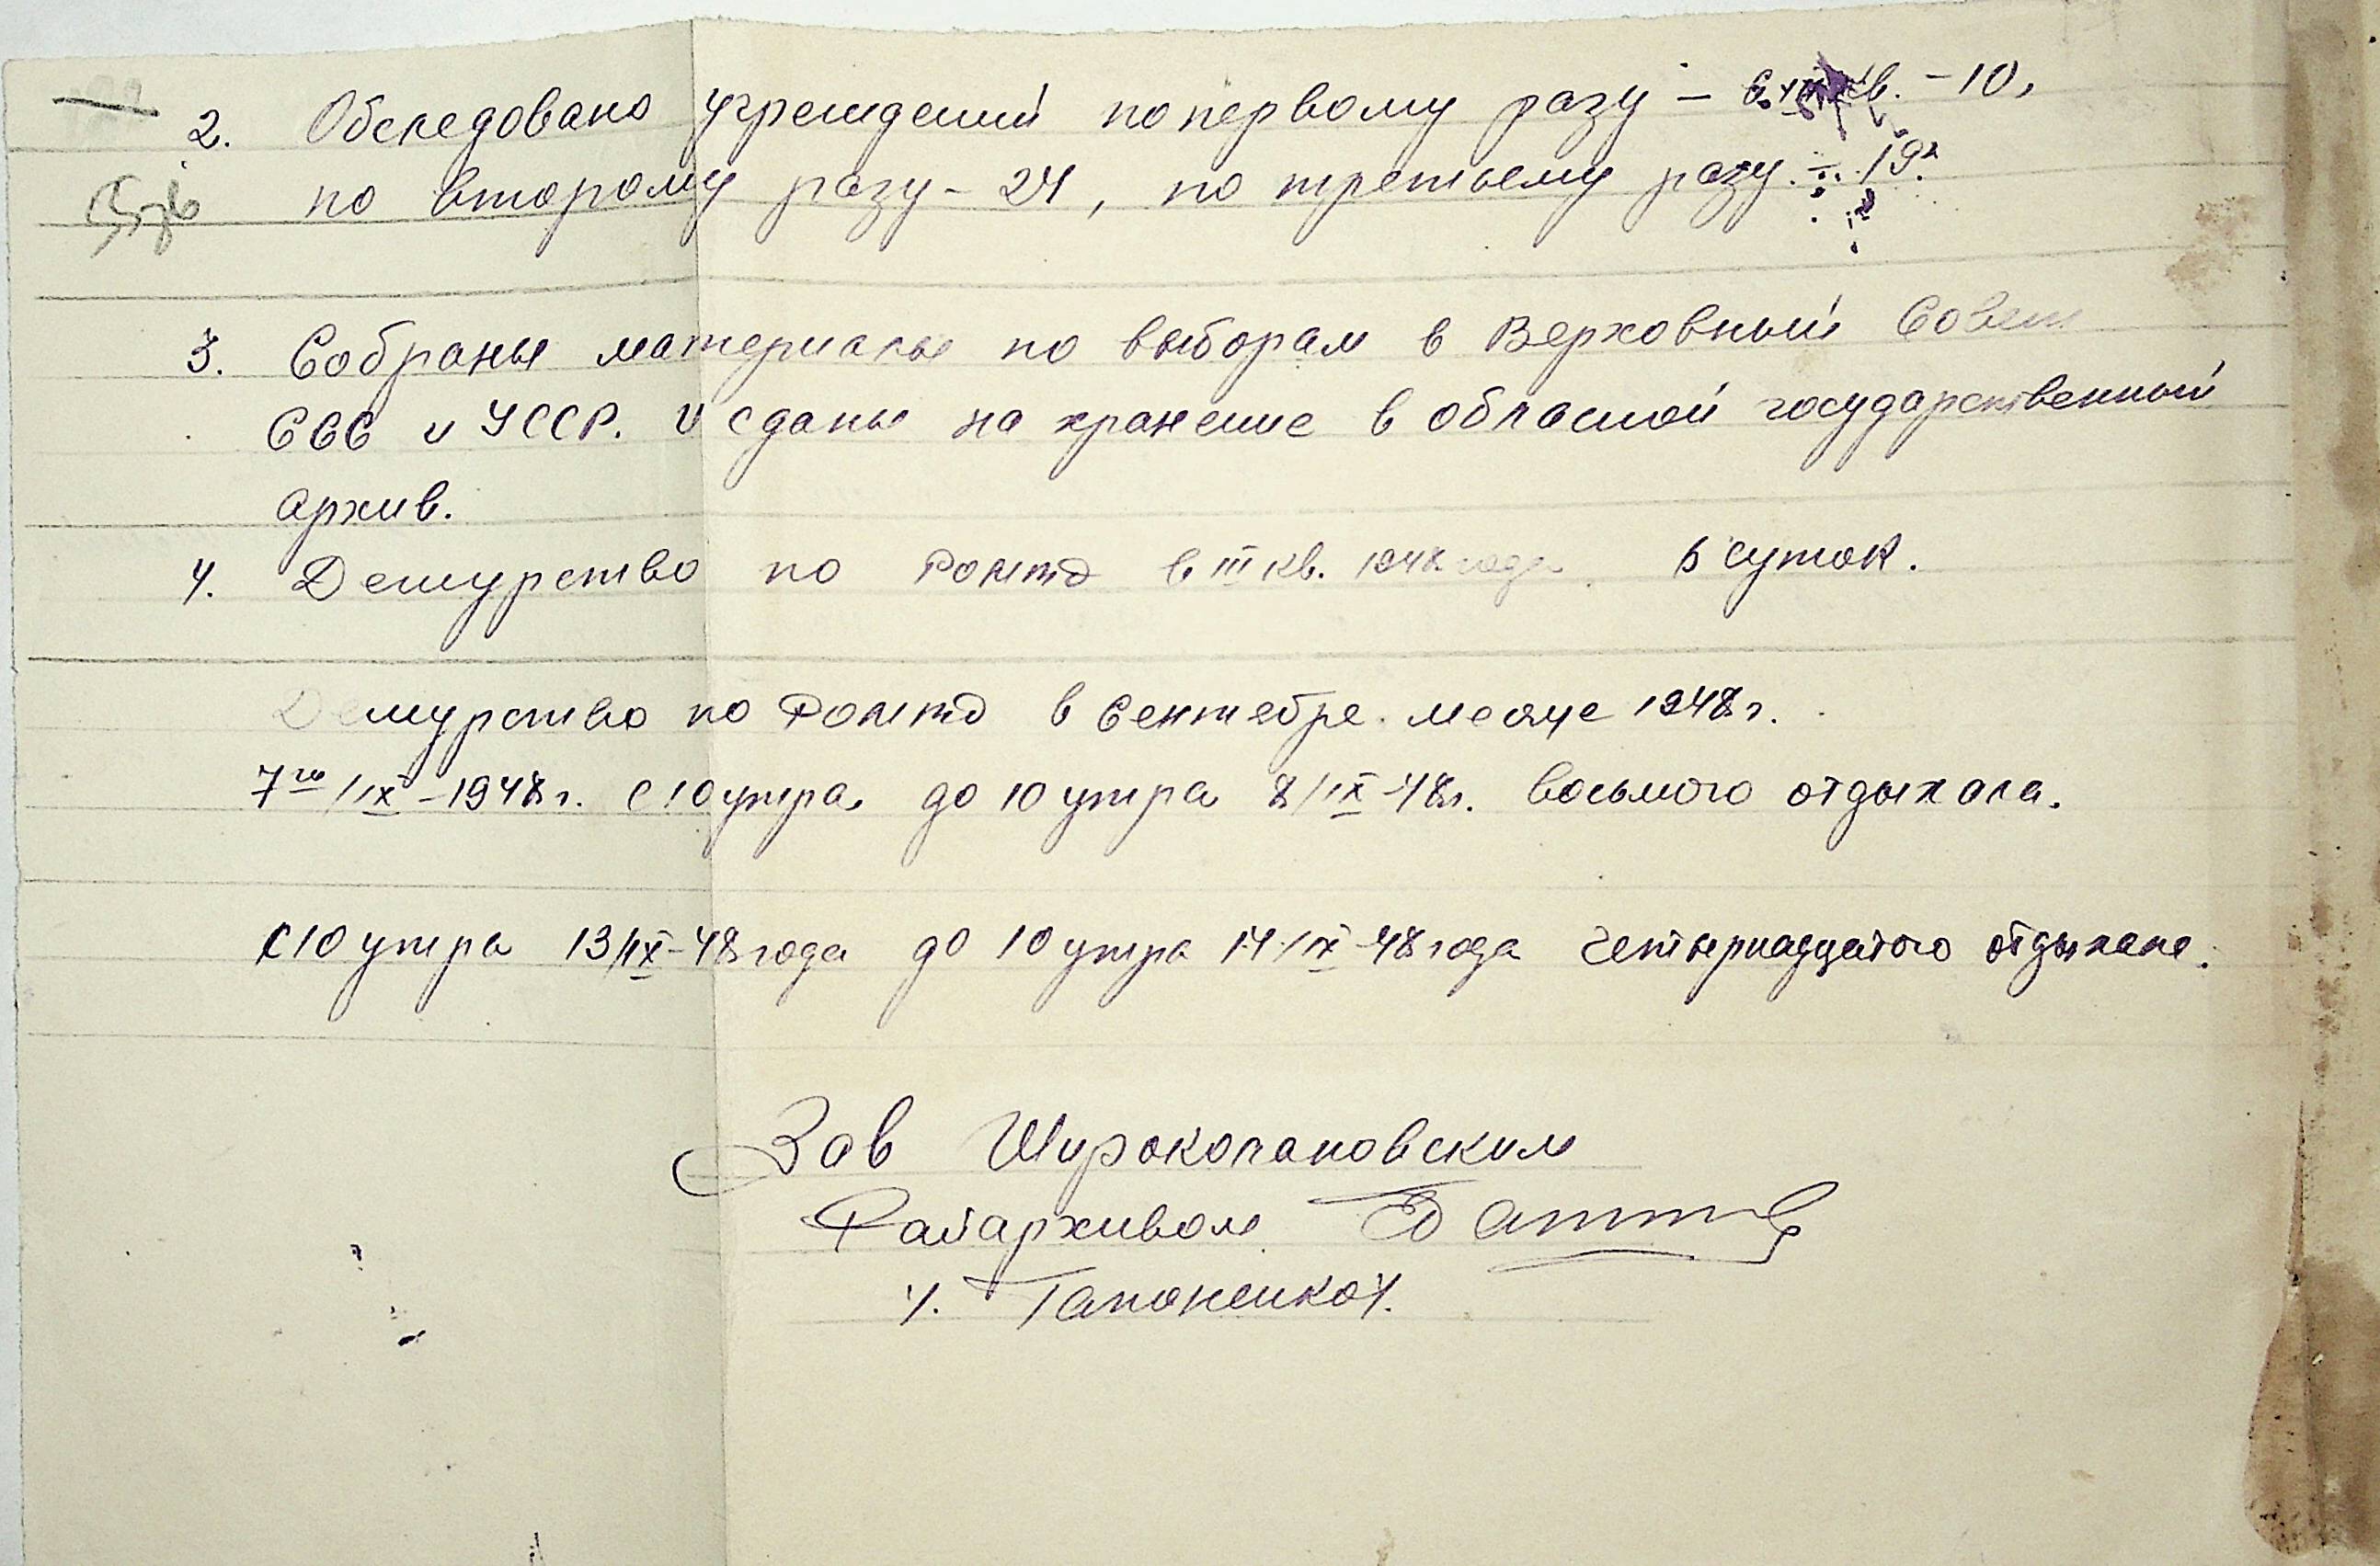 2. Обследовано учреждений по первому разу – в III кв. – 10,
по второму разу – 24, по третьему разу – 19.
3. Собраны материалы по выборам в Верховный Совет
ССС и УССР. и сданы на хранение в обласной государственный
архив.
4. Дежурство по РОМВД в III кв. 1948 года 5 суток.
Дежурство по РОМВД в Сентебре месяце 1948 г.
7го/IX – 1948 г. с 10 утра до 10 утра 8/IX-48 г. восьмого отдыхала.
с 10 утра 13/IX-48 года до 10 утра 14/IX-48 года четырнадцатого отдыхала.
Зав Широколановским
Райархивом
/. Гапоненко /.